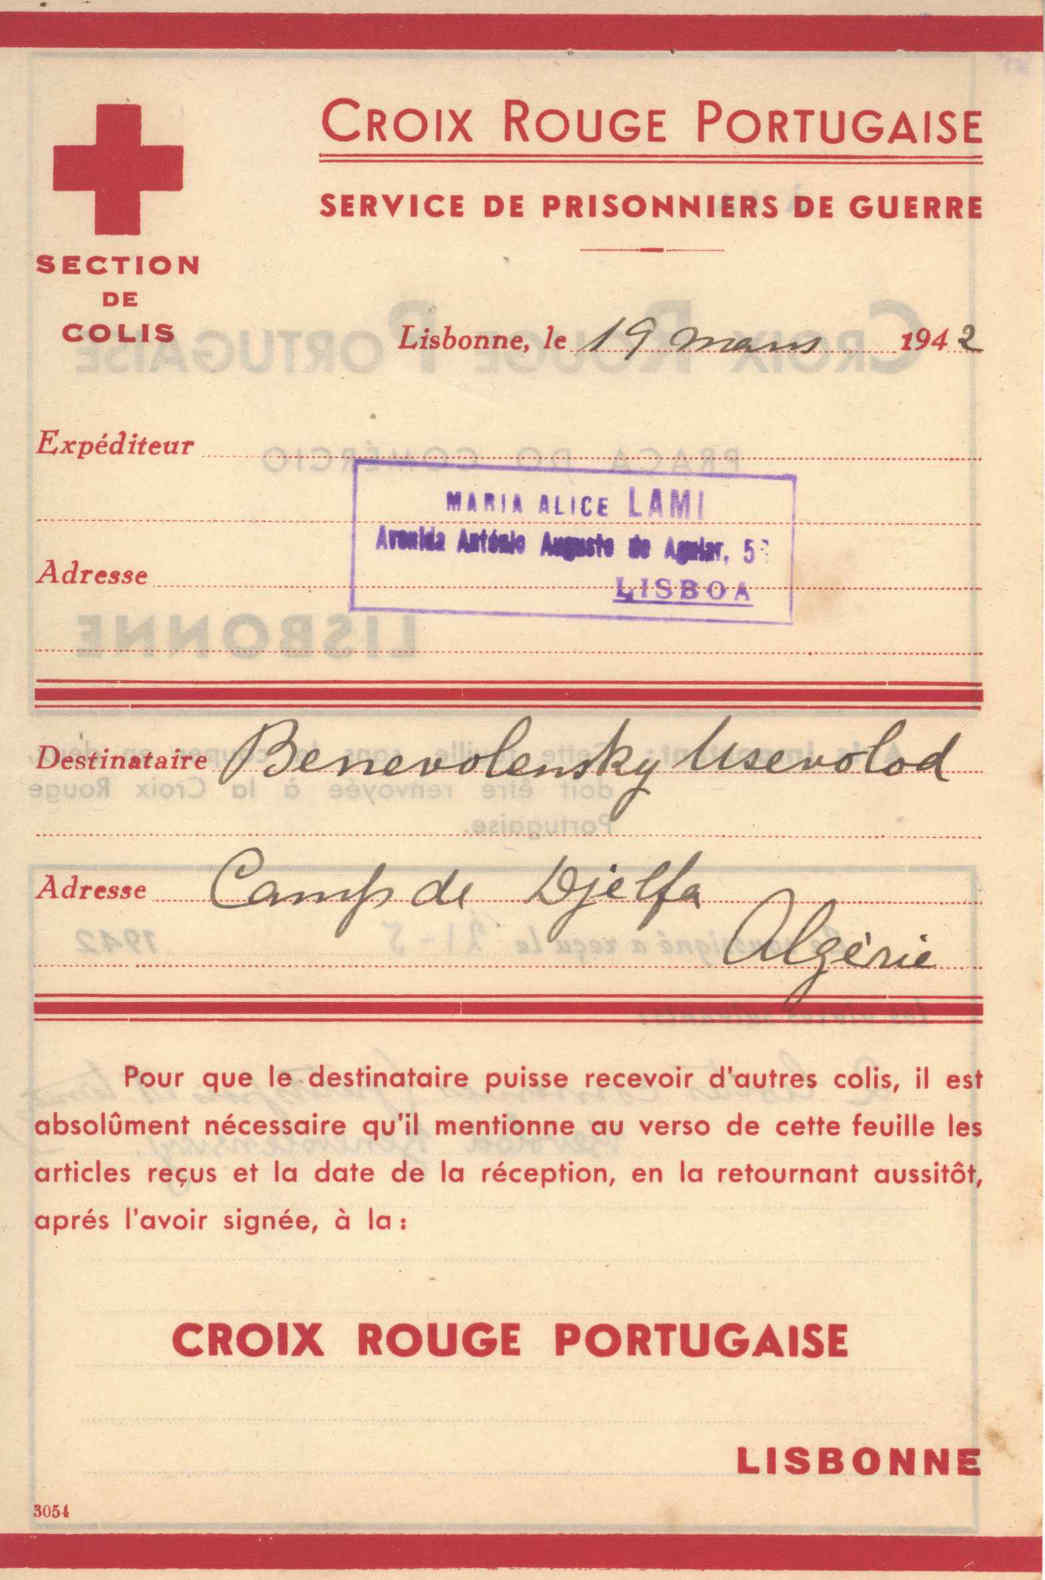 CROIX ROUGE PORTUGAISE
SERVICE DE PRISONNIERS DE GUERRE
SECTION
DE
COLIS
Lisbonne, le 19 mars 1942
Expéditeur
MARIA ALICE LAMI
Avenida António Augusto de Aguiar,
LISBOA
Adresse
Destinataire Benevolensky Usevolod
Adresse Camp de Djelfa
Algérie
Pour que le destinataire puisse recevoir d'autres colis, il est
absolûment nécessaire qu'il mentionne au verso de cette feuille les
articles reçus et la date de la réception, en la retournant aussitôt,
aprés l'avoir signée, à la :
CROIX ROUGE PORTUGAISE
LISBONNE
3054